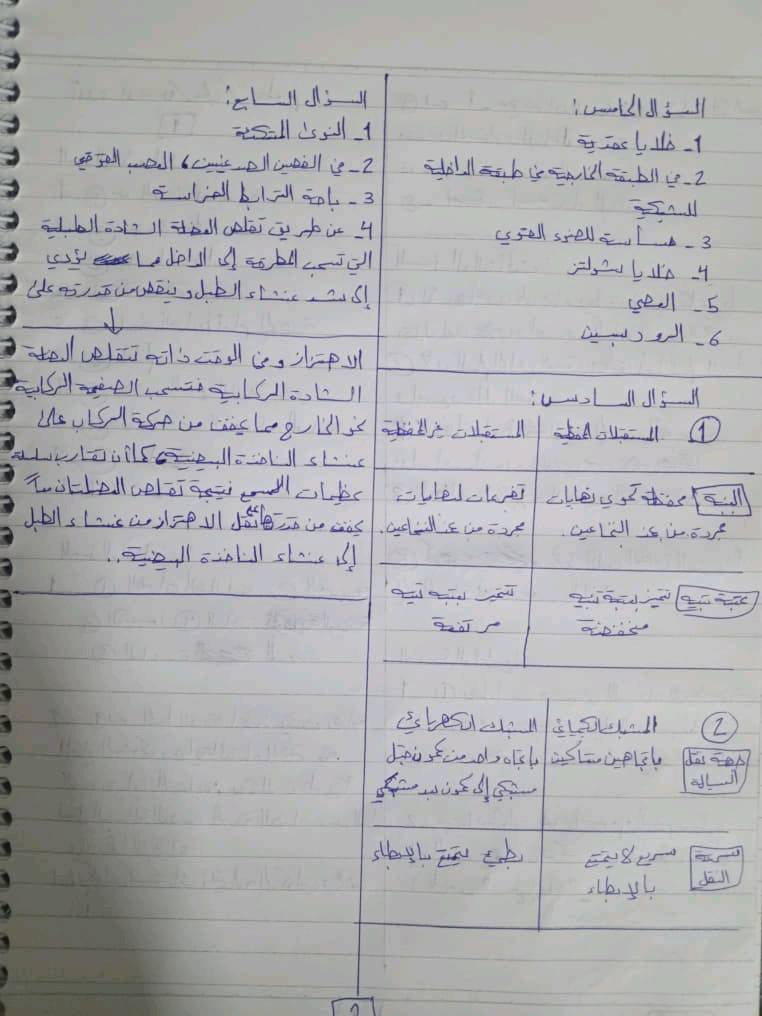 السؤال الخامس:
1- خلايا عقدية
2- في الطبقة الخارجية في طبقة الداخلية
للشبكية
3- حساسة للضوء القوي
4- خلايا شولتز
5- العصي
6- الرودبسين
السؤال السادس:
1 المستقبلات الحفظية المستقبلات غير الحفظية
البنية محفظة تحوي نهايات تفرعات لنهايات
مجردة من غمد النخاعين. مجردة من غمد النخاعين.
عتبة تنبيه تتميز بعتبة تنبيه تتميز بعتبة تنبيه
منخفضة مرتفعة
2 المشبك الكيميائي المشبك الكهربائي
جهة نقل السيالة باتجاهين متعاكسين باتجاه واحد من عكون قبل
مشبكي إلى عكون بعد مشبكي
سرعة النقل سريع لا يتمتع بطيء يتمتع بالإبطاء
بالإبطاء
السؤال السابع:
1- النوى المتكئة
2- في الفصين الصدغيين، العصب القوقعي
3- باحة الترابط الحراسية
4- عن طريق تقلص العضلة الشادة الطبلية
التي تسحب المطرقة إلى الداخل مما يؤدي
إلى شد غشاء الطبل وينقص من قدرته على
الاهتزاز وفي الوقت ذاته تتقلص العضلة
الشادة الركابية فتسحب الصفيحة الركابية
نحو الخارج مما يخفف من حركة الركاب على
غشاء النافذة البيضية، كما أن تقارب سلسلة
عظيمات السمع نتيجة تقلص العضلتان معاً
يخفف من قدرتها على نقل الاهتزاز من غشاء الطبل
إلى غشاء النافذة البيضية..
2